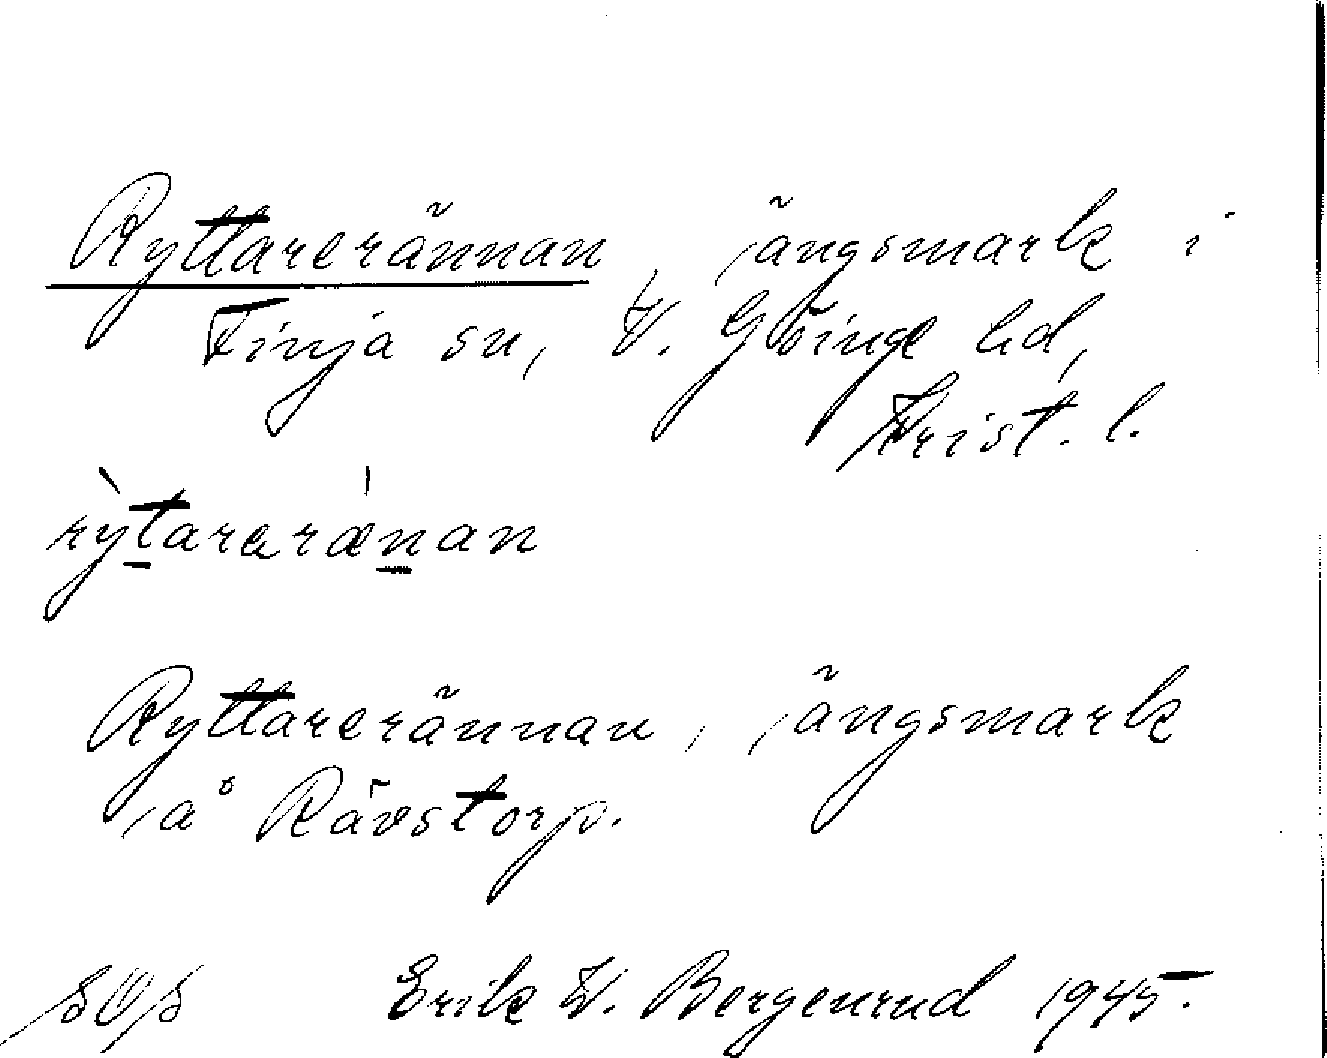 Ryttarerännan, ängsmark i
Finja sn, V. Göinge hd,
Krist. l.
rỳtararæ̍nan
Ryttarerännan, ängsmark
å Rävstorp.
SOS Erik W. Bergenrud 1945.